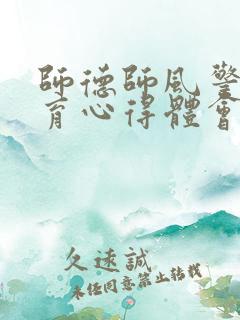 師德師風警
育心得體會
久遠誠
未經同意禁止轉載